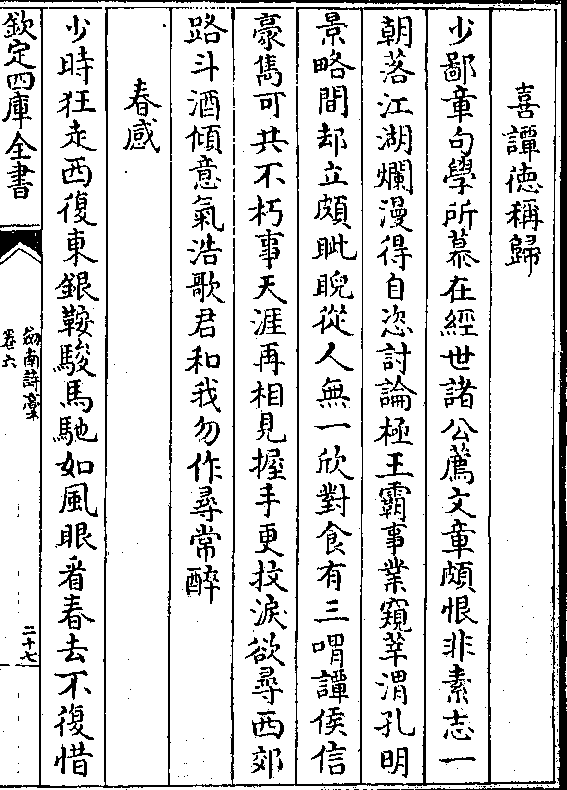 喜譚徳稱歸
少鄙章句學所慕在經世諸公薦文章頗恨非素志一
朝落江湖爛漫得自恣討論極王霸事業窺莘渭孔明
景略間却立頗眦睨從人無一欣對食有三喟譚侯信
豪雋可共不朽事天涯再相見握手更抆淚欲尋西郊
路斗酒傾意氣浩歌君和我勿作尋常醉
春感
少時狂走西復東銀鞍駿馬馳如風眼看春去不復惜
欽定四庫全書
劔南詩藁
卷六
二十七